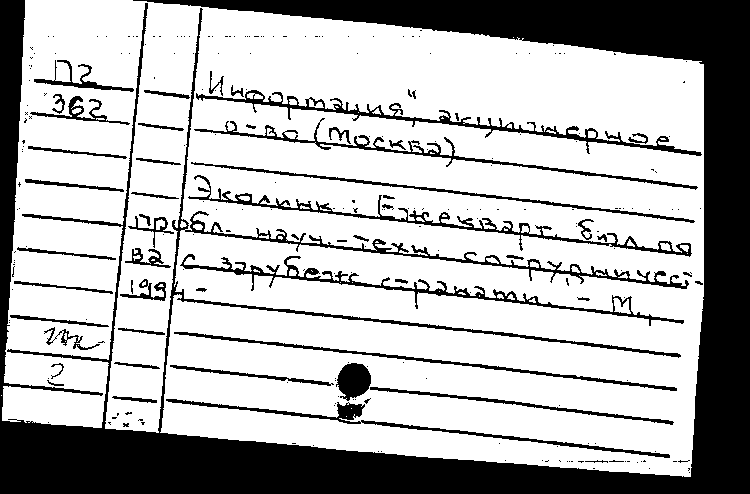 П2
362
"Информация", акционерное
о-во (Москва)
Эколинк : Ежекварт. бюл. по
пробл. науч.-техн. сотрудничест-
ва с зарубеж странами. - М.,
1994 -
2